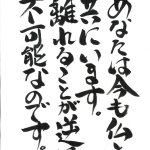 あなたは今も仏い
共にいます。
離れることが出逆
不可能なのです。